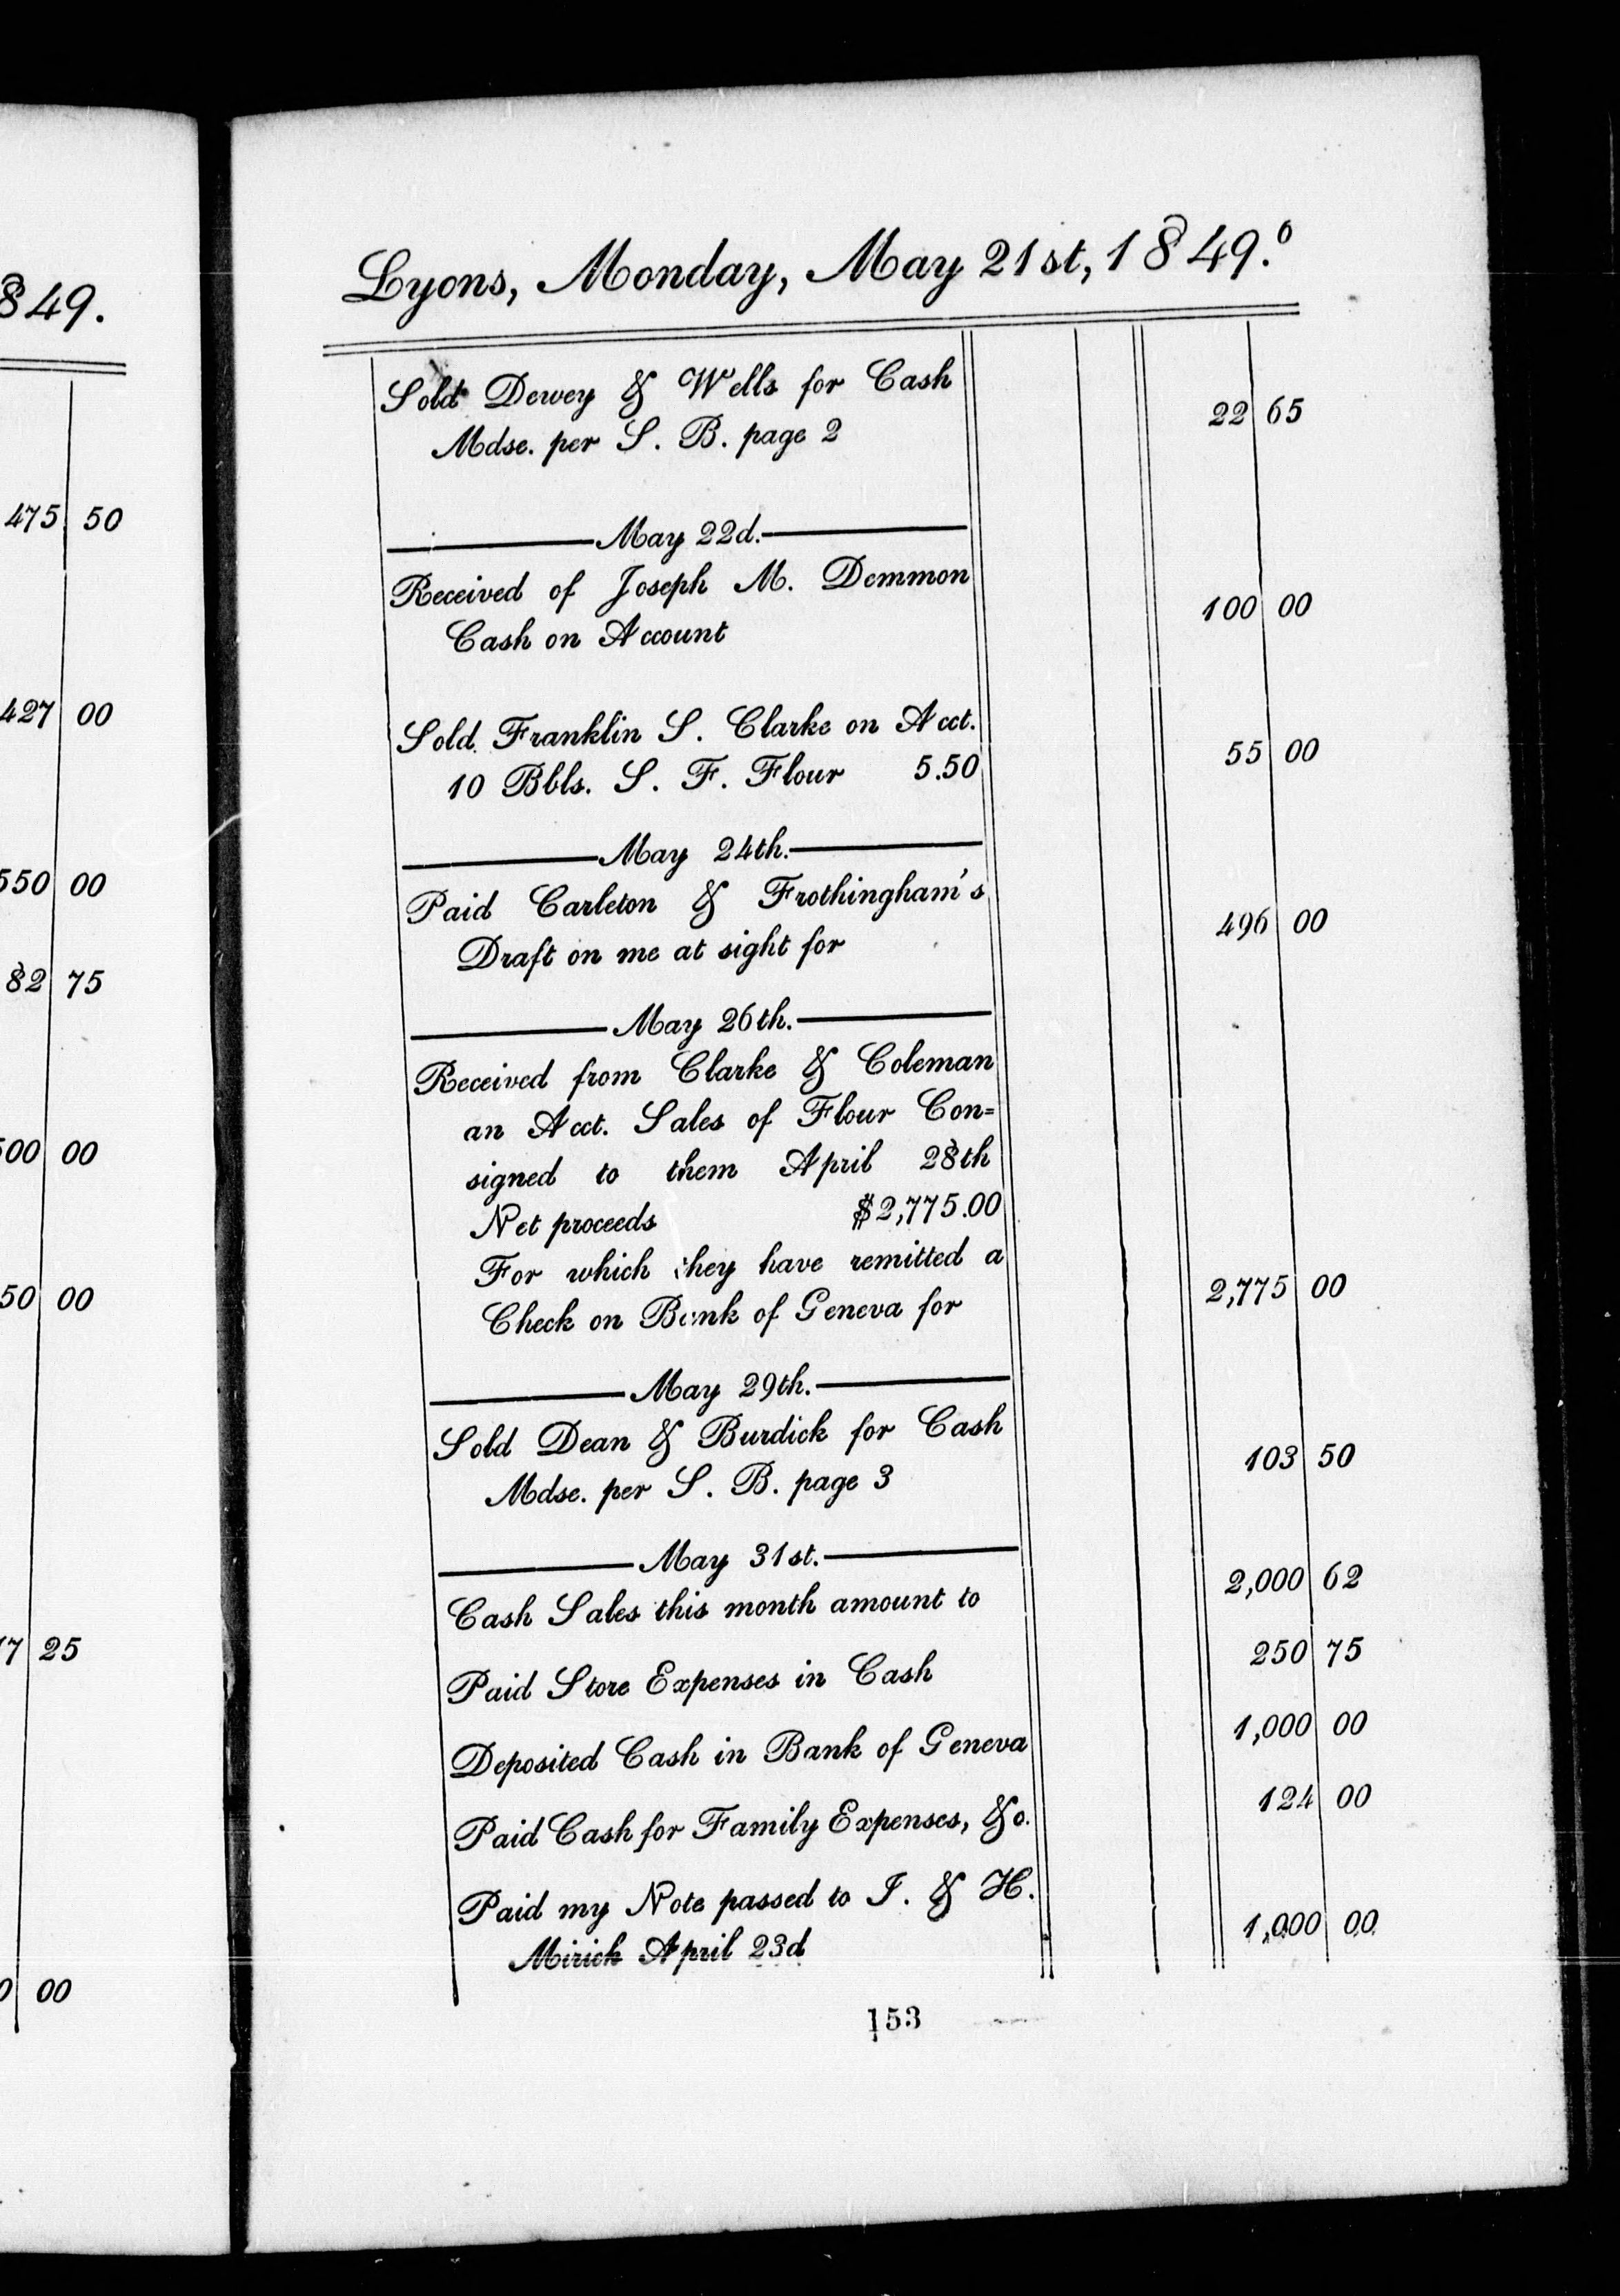 849.
475 50
427 00
550 00
82 75
500 00
50 00
17 25
0 00
Lyons, Monday, May 21st, 1849.
Sold Dewey & Wells for Cash
Mdse. per S. B. page 2 22 65
May 22d.
Received of Joseph M. Demmon
Cash on Account 100 00
Sold Franklin S. Clarke on Acct.
10 Bbls. S. F. Flour 5.50 55 00
May 24th.
Paid Carleton & Frothingham's
Draft on me at sight for 496 00
May 26th.
Received from Clarke & Coleman
an Acct. Sales of Flour Con=
signed to them April 28th
Net proceeds $2,775.00
For which they have remitted a
Check on Bank of Geneva for 2,775 00
May 29th.
Sold Dean & Burdick for Cash
Mdse. per S. B. page 3 103 50
May 31st.
Cash Sales this month amount to 2,000 62
Paid Store Expenses in Cash 250 75
Deposited Cash in Bank of Geneva 1,000 00
Paid Cash for Family Expenses, &c. 124 00
Paid my Note passed to I. & H.
Mirick April 23d 1,000 00
153